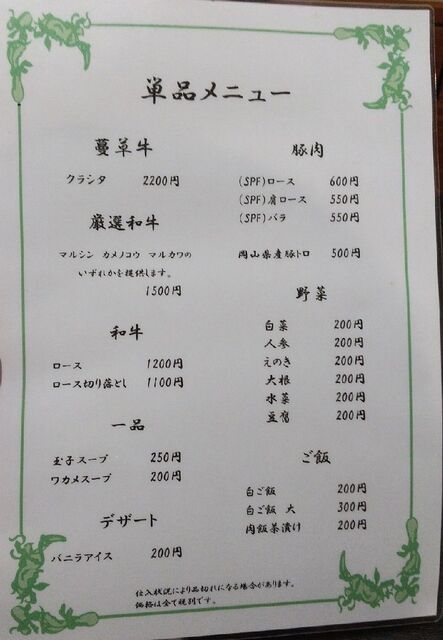 単品メニュー
蔓草牛
クラシタ 2200円
厳選和牛
マルシン カメノコウ マルカワの
いずれかを提供します。
1500円
和牛
ロース 1200円
ロース切り落とし 1100円
一品
玉子スープ 250円
ワカメスープ 200円
デザート
バニラアイス 200円
豚肉
(SPF)ロース 600円
(SPF)肩ロース 550円
(SPF)バラ 550円
岡山県産豚トロ 500円
野菜
白菜 200円
人参 200円
えのき 200円
大根 200円
水菜 200円
豆腐 200円
ご飯
白ご飯 200円
白ご飯 大 300円
肉飯茶漬け 200円
仕入状況により品切れになる場合があります。
価格は全て税別です。